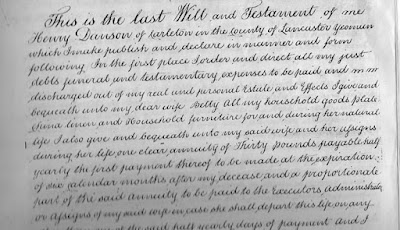 This is the last Will and Testament of me
Henry Danson of Carleton in the County of Lancaster Yeoman
which I make publish and declare in manner and form
following In the first place I order and direct all my just
debts funeral and testamentary expenses to be paid and
discharged out of my real and personal Estate and Effects I give and
bequeath unto my dear wife Betty all my household goods plate
china linen and Household furniture for and during her natural
life I also give and bequeath unto my said wife and her assigns
during her life one clear annuity of Thirty pounds payable half
yearly the first payment thereof to be made at the expiration
of six calendar months after my decease and a proportionate
part of the said annuity to be paid to the Executors Administrators
or assigns of my said wife in case she shall depart this life on any
of the said half yearly days of payment and I